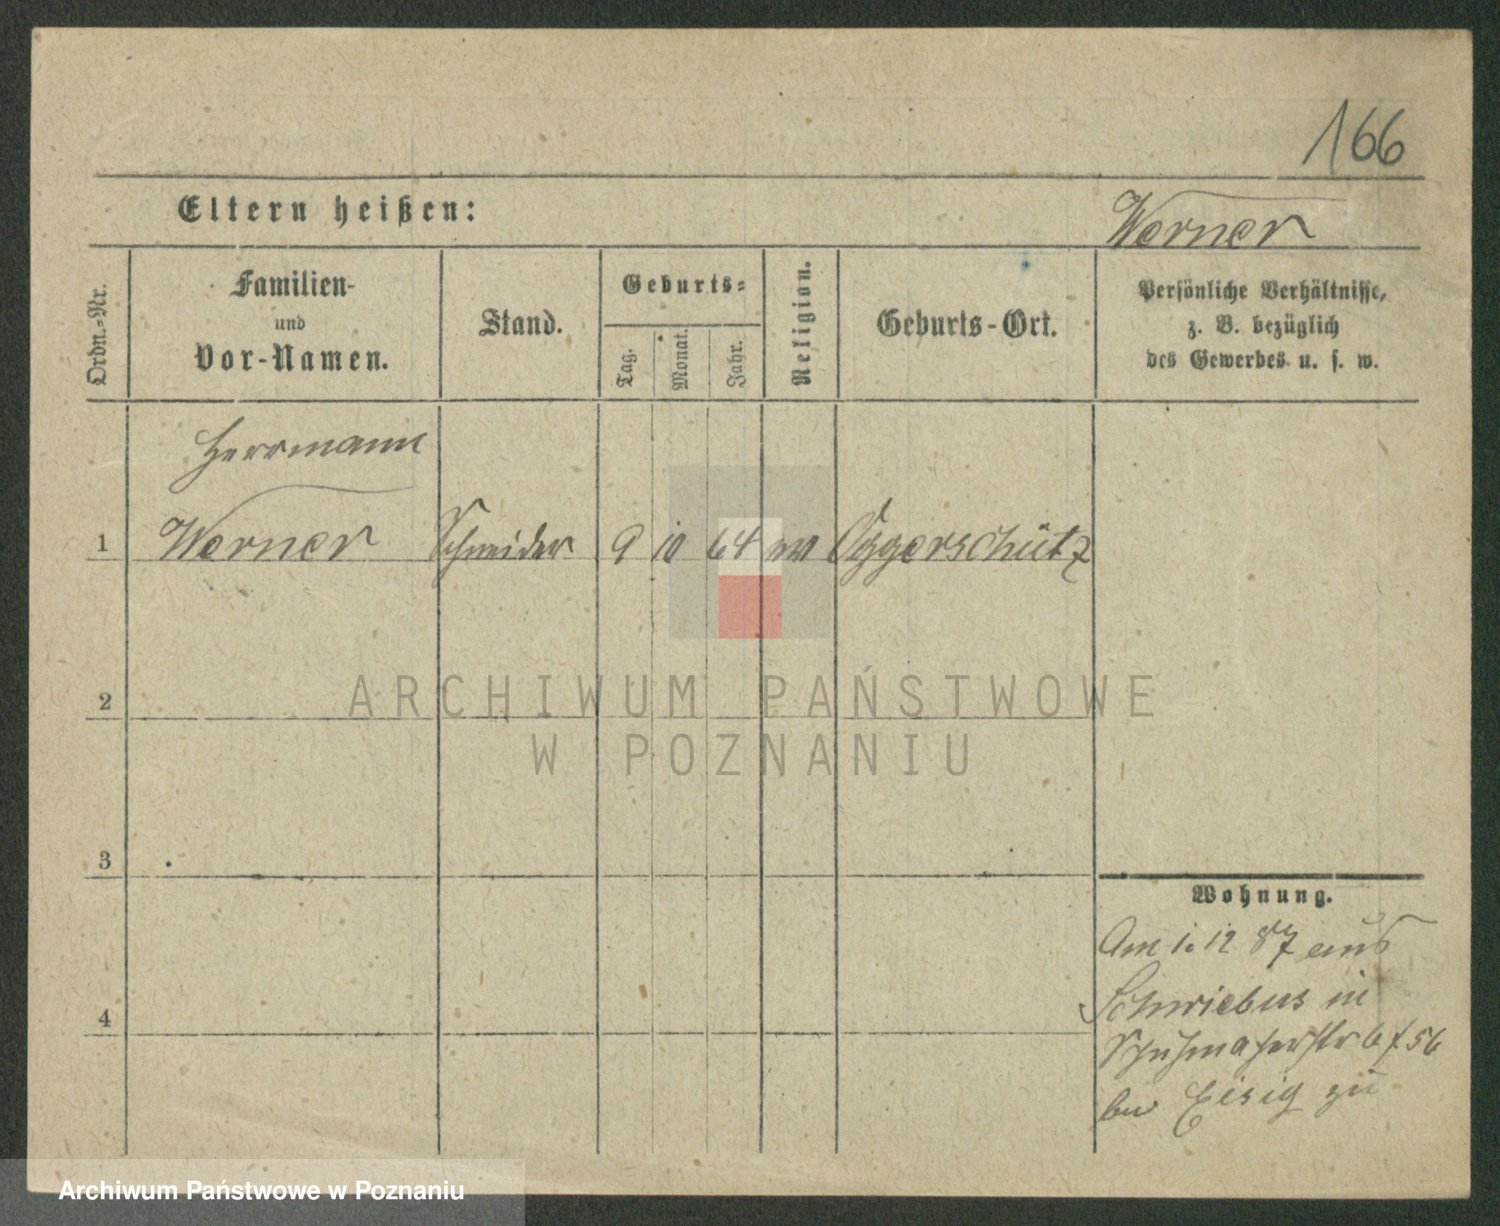 166
Eltern heißen:
Werner
Ordn.-Nr.
Familien-
und
Vor-Namen.
Stand.
Geburts-
Tag.
Monat.
Jahr.
Religion.
Geburts-Ort.
Persönliche Verhältnisse,
z. B. bezüglich
des Gewerbes u. s. w.
Herrmann
1 Werner Schneider 9 10 64 Oggerschütz
2
3
4
Wohnung.
Am 1. 12 87 aus
Schwiebus in
Schuhmacherstr 6
bei Eisig zu
ARCHIWUM PAŃSTWOWE
W POZNANIU
Archiwum Państwowe w Poznaniu